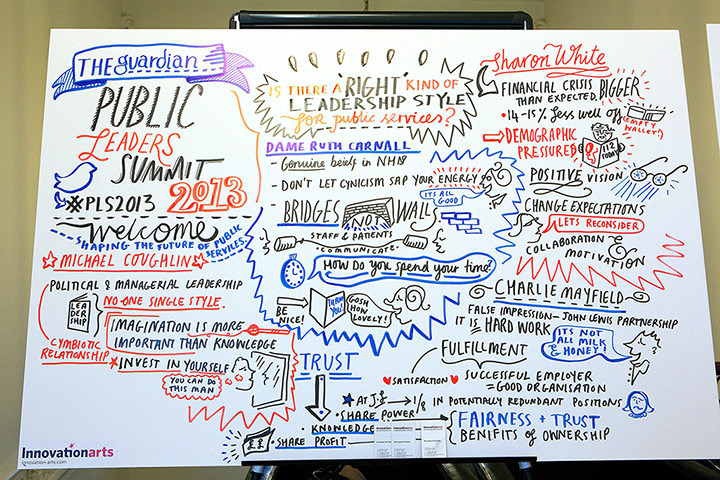 THE guardian
PUBLIC
LEADERS
SUMMIT
2013
#PLS2013
welcome
SHAPING THE FUTURE OF PUBLIC SERVICES.
MICHAEL COUGHLIN
POLITICAL & MANAGERIAL LEADERSHIP
NO ONE SINGLE STYLE.
LEADERSHIP
CYMBIOTIC
RELATIONSHIP
IMAGINATION IS MORE
IMPORTANT THAN KNOWLEDGE
INVEST IN YOURSELF
YOU CAN DO
THIS MAN
Innovationarts
innovation-arts.com
IS THERE A 'RIGHT' KIND OF
LEADERSHIP STYLE
for public services?
DAME RUTH CARNALL
- Genuine beliefs in NHS
- DON'T LET CYNICISM SAP YOUR ENERGY
IT'S ALL
GOOD
BRIDGES NOT WALL
STAFF & PATIENTS
COMMUNICATE
HOW DO you spend your time?
BE
NICE!
THANK
YOU!
GOSH
HOW
LOVELY!
TRUST
SATISFACTION
AT J.L → 1/8 IN POTENTIALLY REDUNDANT POSITIONS
SHARE POWER
KNOWLEDGE
SHARE PROFIT
££
Sharon White
FINANCIAL CRISIS BIGGER
THAN EXPECTED.
14-15% less well off
(EMPTY
WALLET!)
DEMOGRAPHIC
PRESSURES
112
TODAY!
POSITIVE VISION
CHANGE EXPECTATIONS
LETS RECONSIDER
COLLABORATION &
MOTIVATION
CHARLIE MAYFIELD
FALSE IMPRESSION - JOHN LEWIS PARTNERSHIP
IT IS HARD WORK
IT'S NOT
ALL MILK
& HONEY!
FULFILLMENT
SUCCESSFUL EMPLOYER
= GOOD ORGANISATION
FAIRNESS + TRUST
BENEFITS OF OWNERSHIP